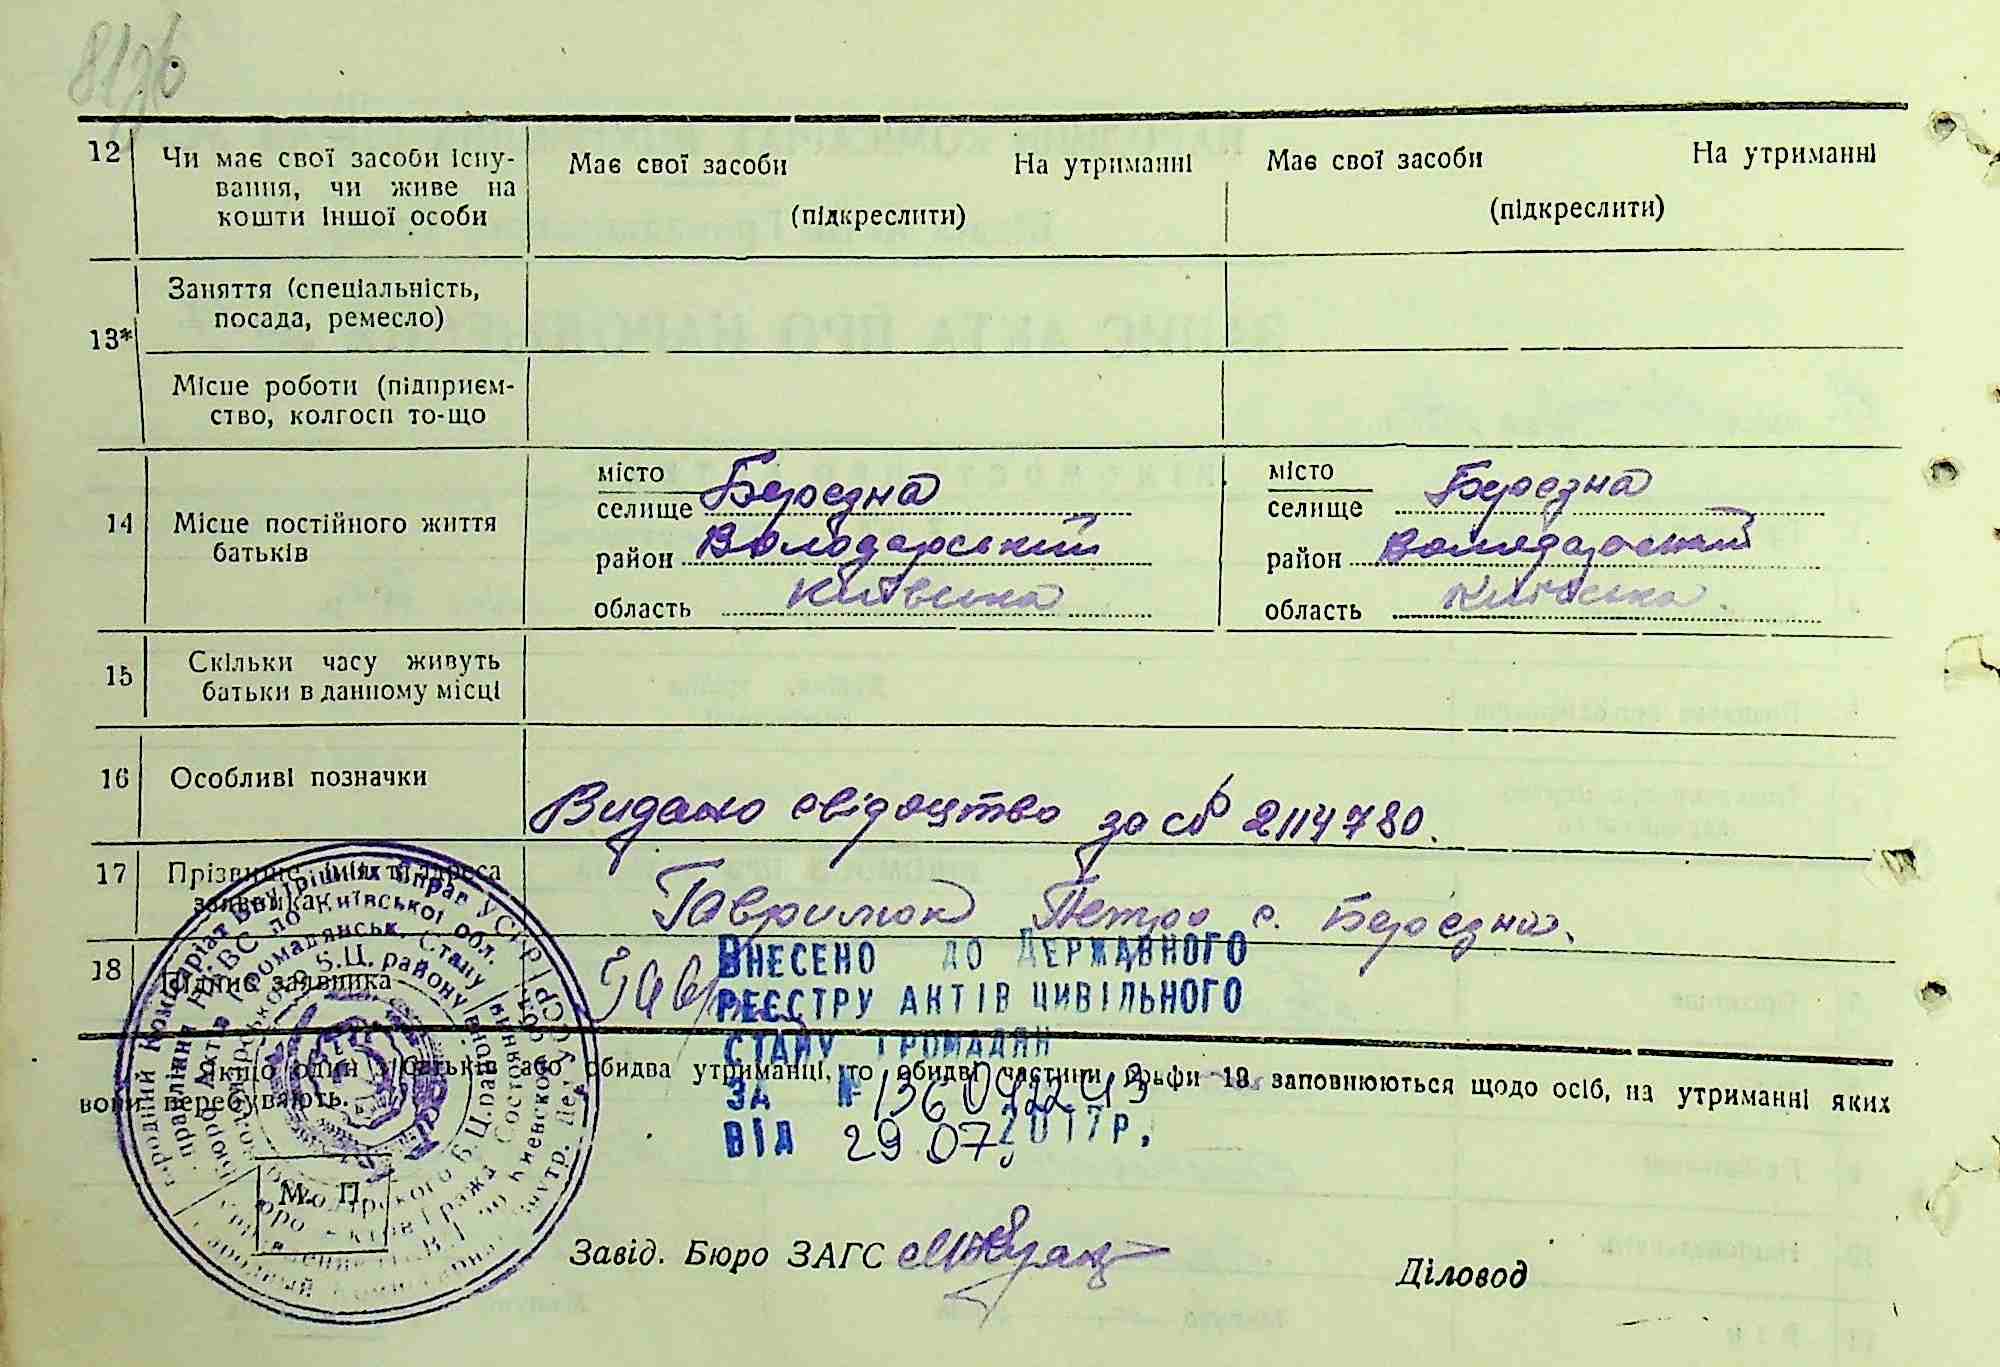 12 Чи має свої засоби існу-
вання, чи живе на
кошти іншої особи
Має свої засоби На утриманні
(підкреслити)
Має свої засоби На утриманні
(підкреслити)
13*
Заняття (спеціальність,
посада, ремесло)
Місце роботи (підприєм-
ство, колгосп то-що
14 Місце постійного життя
батьків
місто
селище Березна
район Володарський
область Київська
місто
селище Березна
район Володарський
область Київська
15 Скільки часу живуть
батьки в данному місці
16 Особливі позначки
Видано свідоцтво за № 2114780.
17 Прізвище, ім'я та адреса
заявника
Гаврилюк Петро с. Березна.
18 Підпис заявника
Гавр
ВНЕСЕНО ДО ДЕРЖАВНОГО
РЕЄСТРУ АКТІВ ЦИВІЛЬНОГО
СТАНУ ГРОМАДЯН
ЗА №
ВІД 29 07. 2017р.
Якщо один з батьків або обидва утриманці, то обидві частини графи 13 заповнюються щодо осіб, на утриманні яких
вони перебувають.
М. П.
Завід. Бюро ЗАГС
Діловод